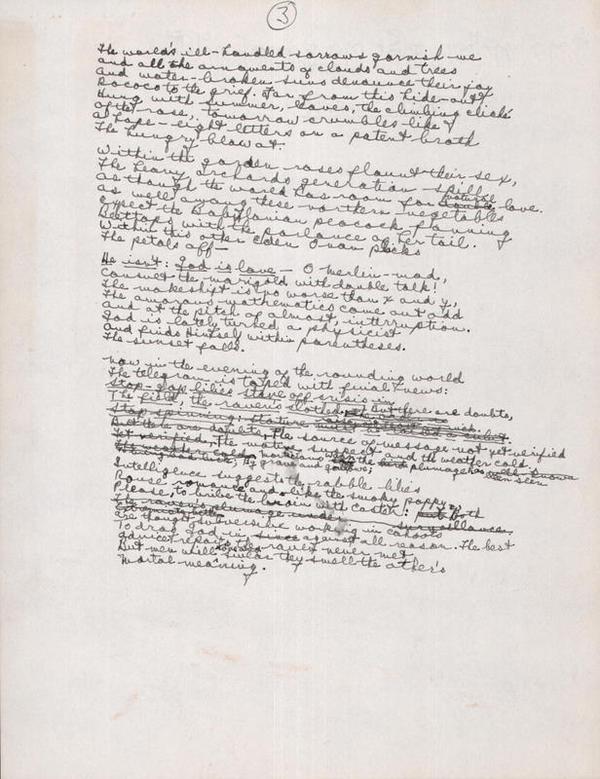 3
The world's ill-handled sorrows garnish me
and all the arguments of clouds and trees
And water-broken suns denounce their joy
Rococo to the grief. Far from this hide-out,
Hung with summer, leaves, the climbing cliché
of the rose, tomorrow crumbles like
a hope - eight letters on a patent broth
The hungry blow at.
Within the garden roses flaunt their sex,
The heavy orchards generation spills
as though the world has room for natural love.
as well among these northern vegetables
expect the Babylonian peacock fanning
with the parlance of her tail.
Within this other Eden Onan picks
The petals off—
He isn't: God is love — O Merlin-mad,
the marigold with double talk!
The makeshift is no worse than x and y,
The amorous mathematics come out odd
and at the pitch of almost, interruption.
God is lately turned a physicist
And finds Himself within parentheses.
The sunset falls.
Now in the evening of the rounding world
The telegram is toyed with final news:
Stop-gap lilies stave off crisis in
The field, the raven's clotted, But there are doubts,
Stop spinning, stature
But there are doubts, The source of message not yet verified
Yet verified, The motive suspect and the weather cold.
the plumage has been seen
Intelligence suggests the rabble likes
Rouse romance and like the smoky poppy
Please, to bribe the brain with castor: Both
The raven's plumage under surveillance
are though subversive working in cahoots
To drag God in against all reason. The best
advice reports the raven never met
But men while they smell the other's
Mortal meaning.